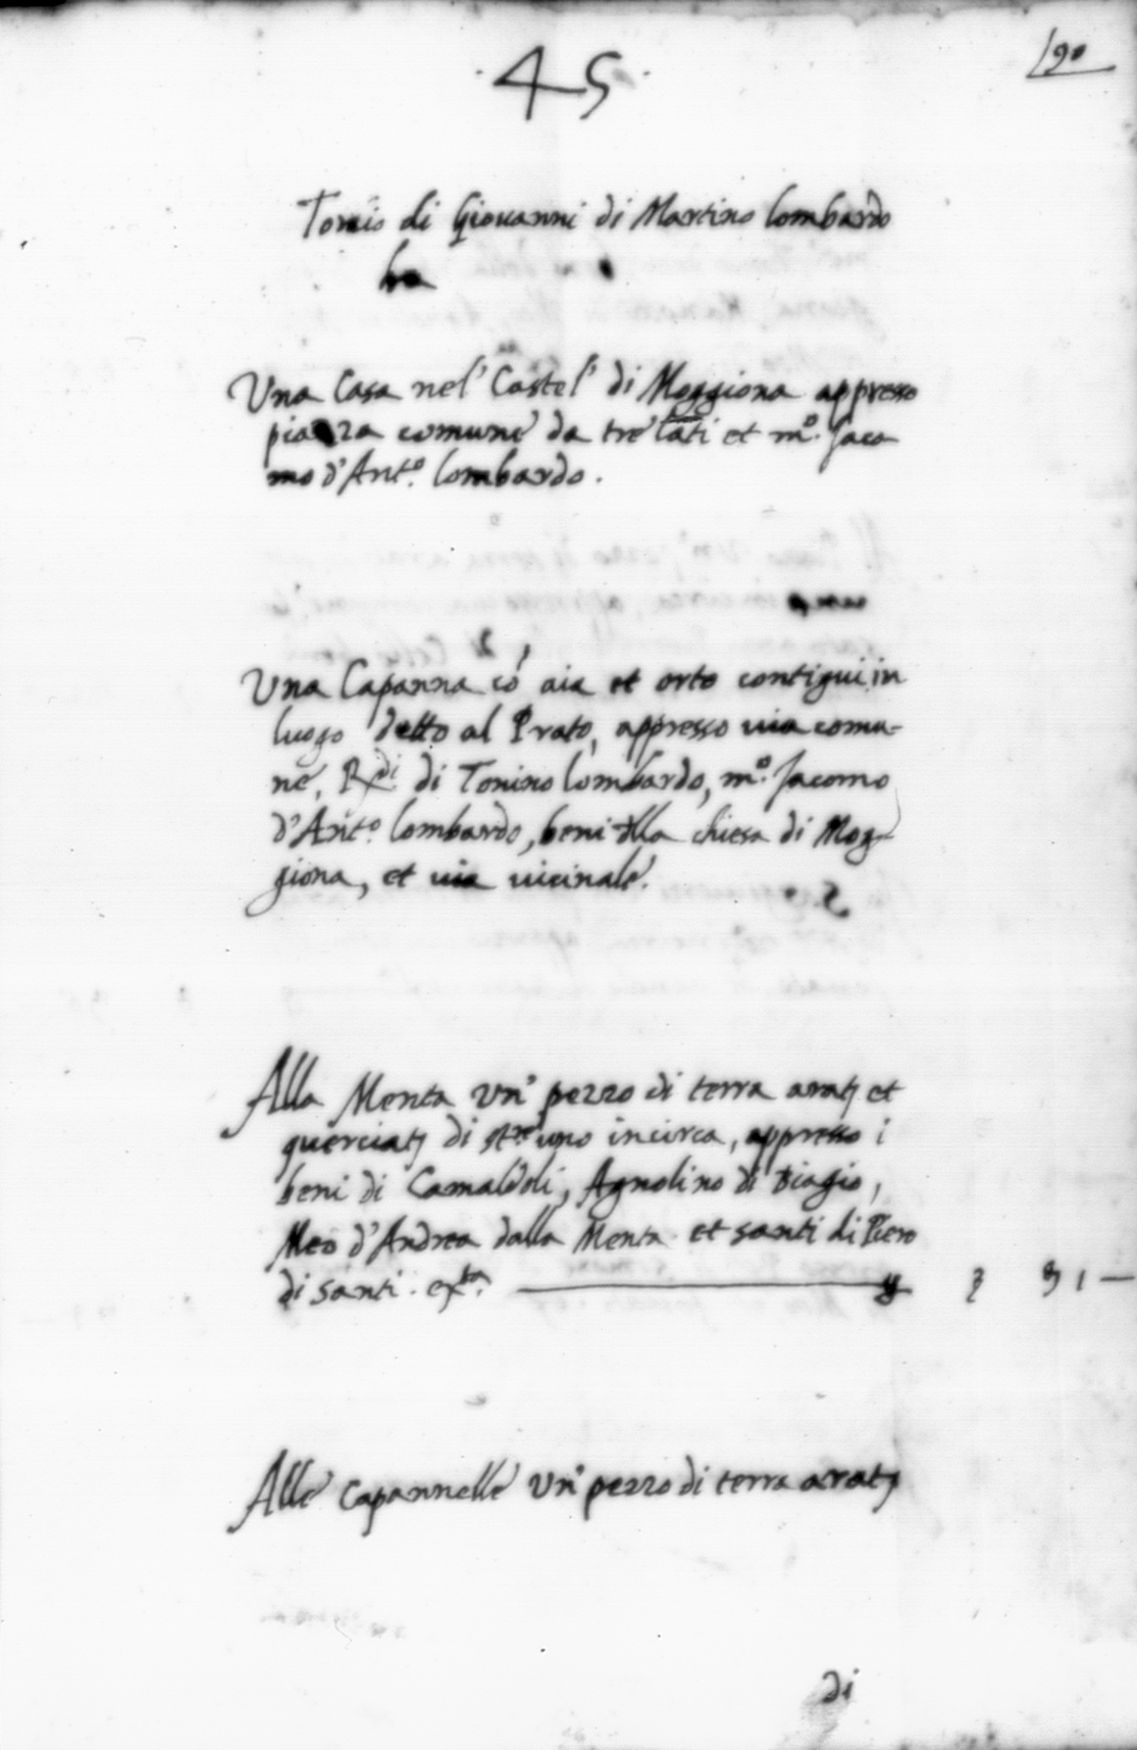 190
·45·
Tonio di Giovanni di Martino lombardo
ha
Una Casa nel' Castel' di Moggiona appresso
piazza comune da tre lati et mº. Jaco
mo d'Antº. lombardo.
Una Capanna có aia et orto contigui in
luogo detto al Prato, appresso uia comu-
ne, Rdi di Tonino lombardo, mº. Jacomo
d'Antº. lombardo, beni dlla chiesa di Mog-
giona, et uia uicinale.
Alla Menta un' pezzo di terra arat et
querciat di uno incirca, appresso i
beni di Camaldoli, Agnolino di Biagio,
Meo d'Andrea dalla Menta et santi di Piero
di santi.
Alle Capannelle un' pezzo di terra arat
di